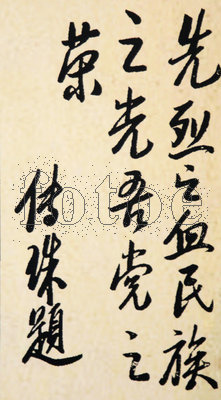 先烈之血民族
之光吾党之
荣
传珠題
fotoe